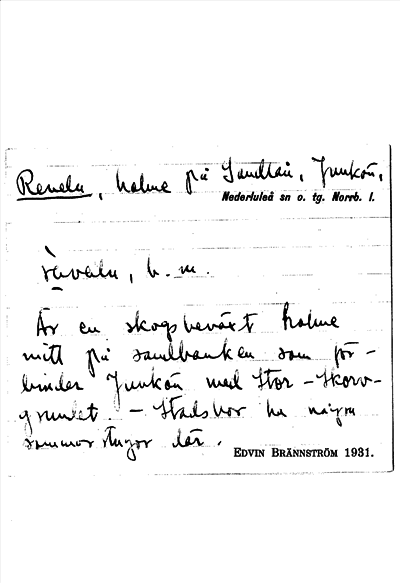 Reveln, holme på Sandön, Junkön,
Nederluleå sn o. tg. Norrb. l.
räveln, b. m.
Är en skogsbeväxt holme
mitt på sandbanken som för-
binder Junkön med Stor-Skorv-
grundet. - Stadsbor ha några
sommarstugor där.
EDVIN BRÄNNSTRÖM 1931.